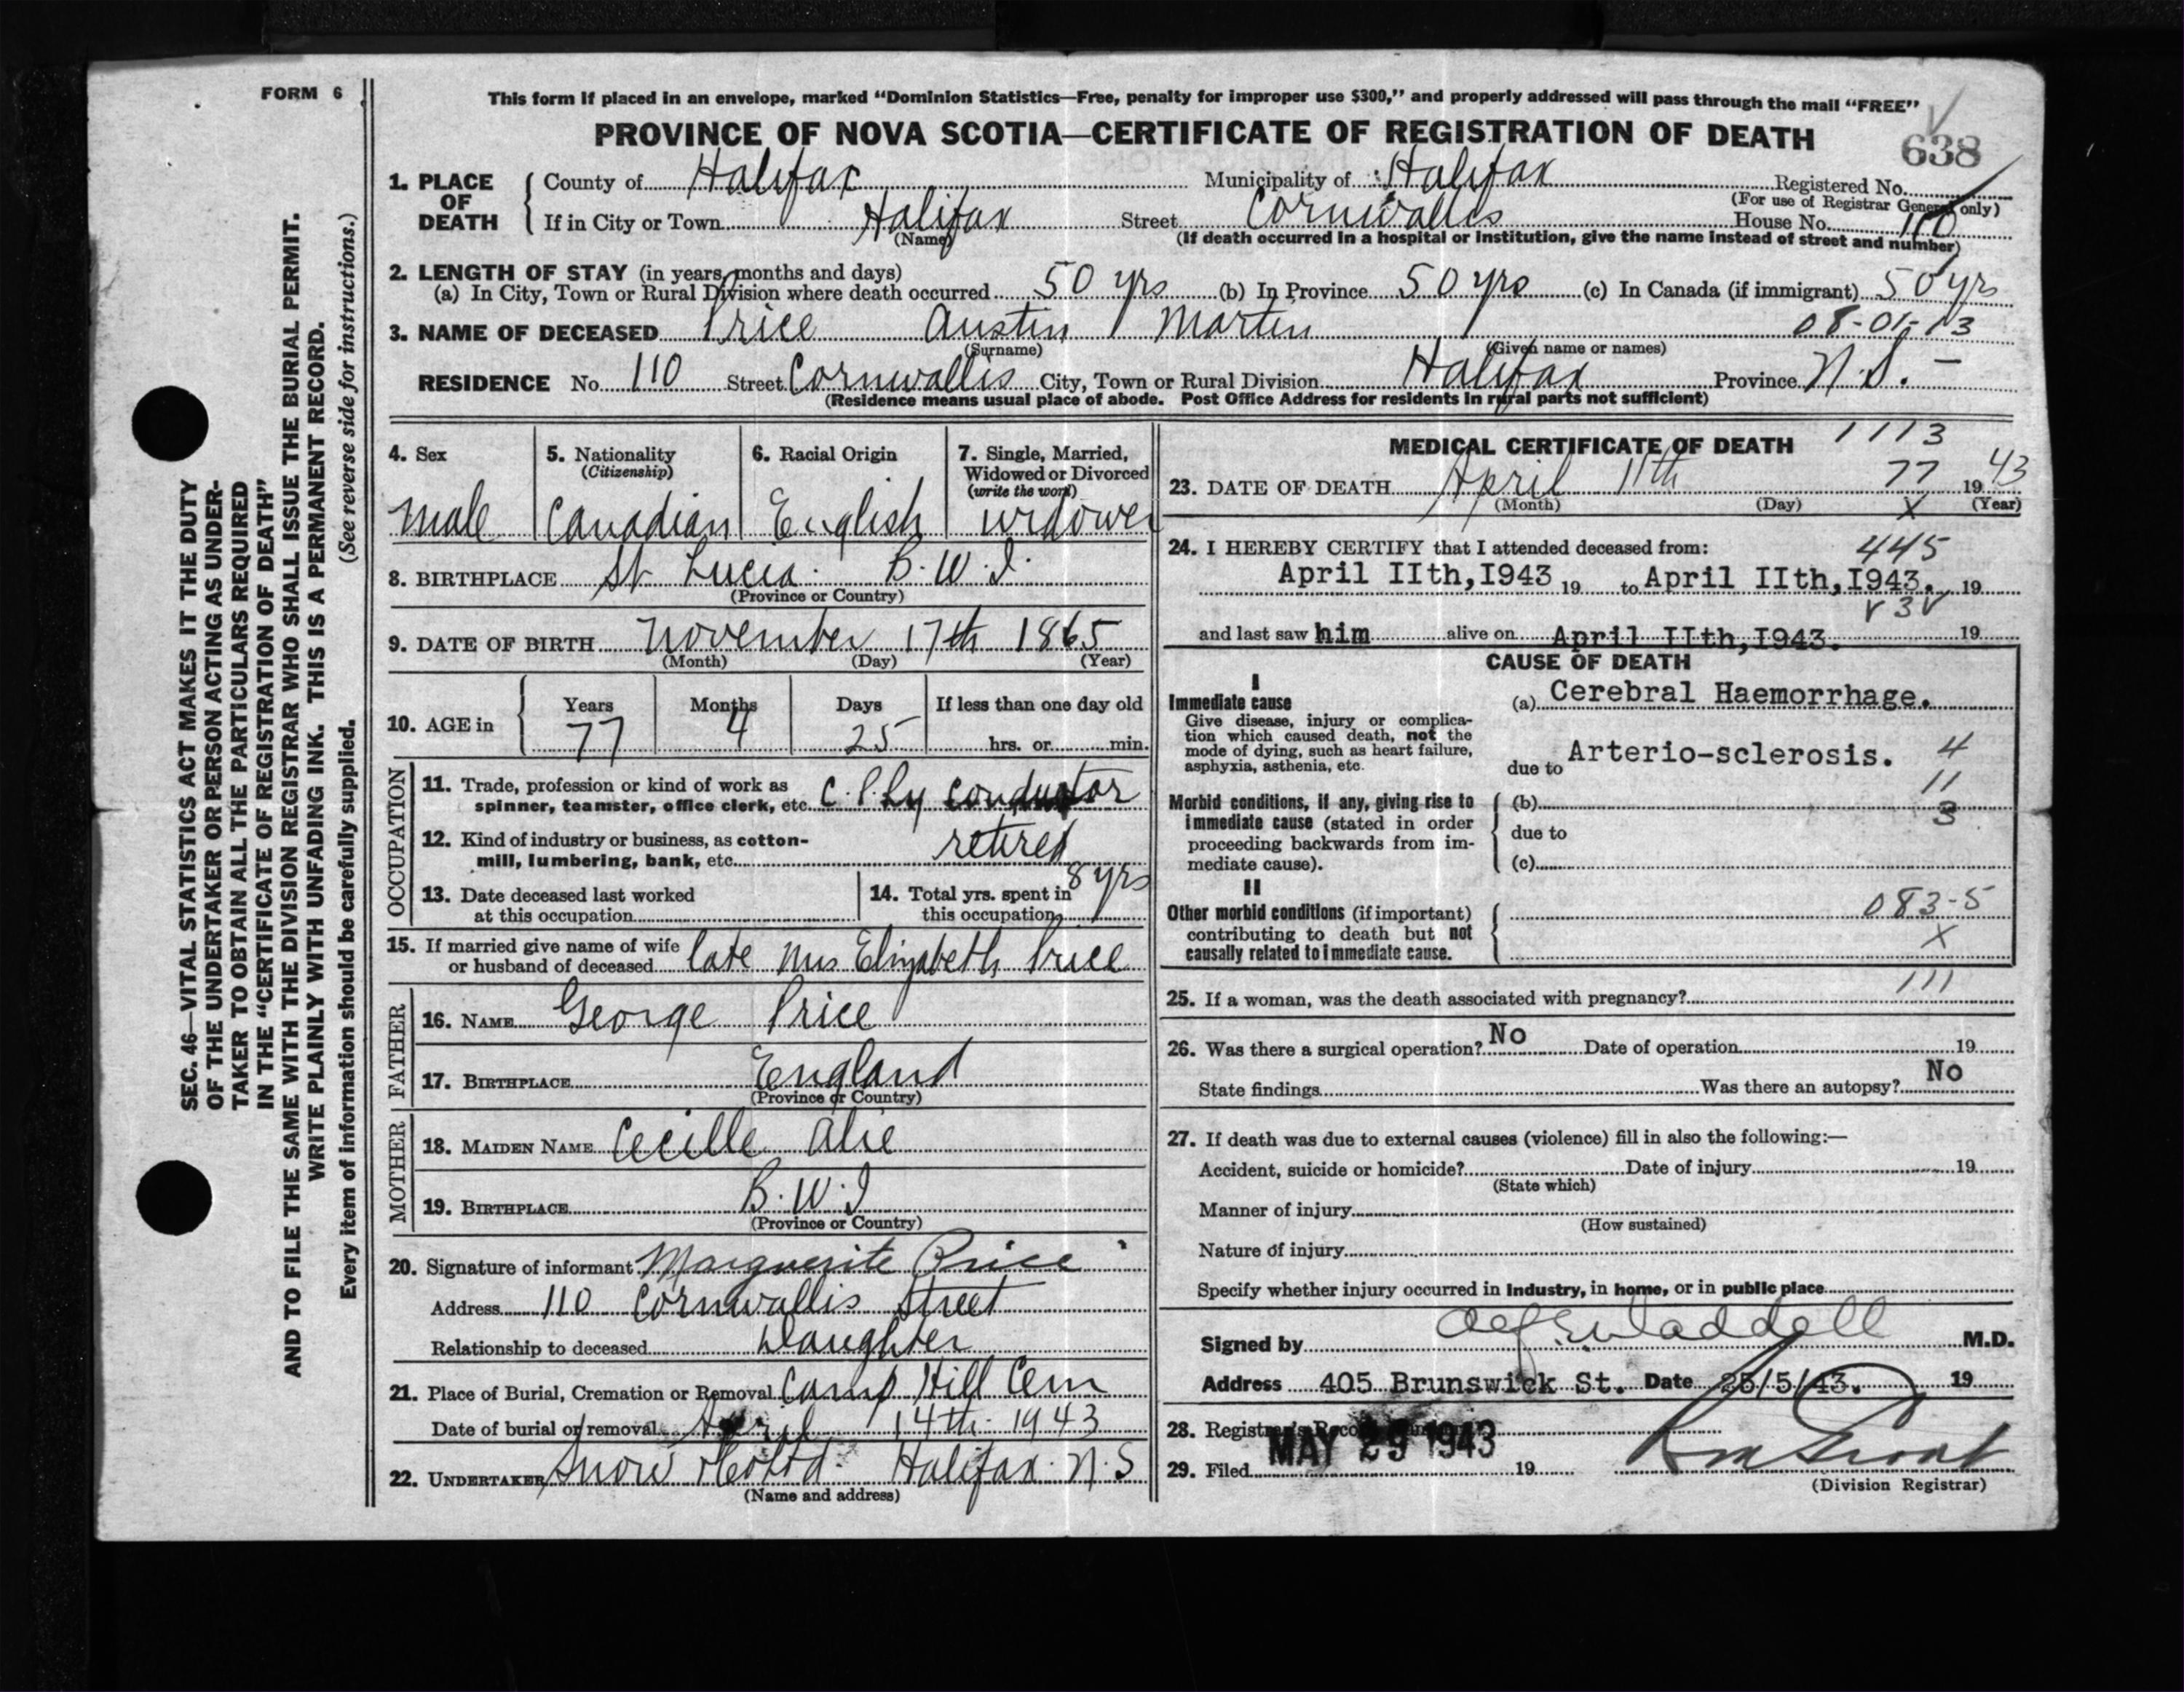 FORM 6
This form if placed in an envelope, marked “Dominion Statistics—Free, penalty for improper use $300,” and properly addressed will pass through the mail “FREE”
PROVINCE OF NOVA SCOTIA—CERTIFICATE OF REGISTRATION OF DEATH
638
1. PLACE OF DEATH
County of Halifax Municipality of Halifax Registered No.
(For use of Registrar General only)
If in City or Town Halifax Street Cornwallis House No. 110
(Name) (If death occurred in a hospital or institution, give the name instead of street and number)
2. LENGTH OF STAY (in years, months and days)
(a) In City, Town or Rural Division where death occurred 50 yrs (b) In Province 50 yrs (c) In Canada (if immigrant) 50 yrs
3. NAME OF DECEASED Price Austin Martin 08-01-13
(Surname) (Given name or names)
RESIDENCE No. 110 Street Cornwallis City, Town or Rural Division Halifax Province N.S. –
(Residence means usual place of abode. Post Office Address for residents in rural parts not sufficient)
4. Sex
male
5. Nationality
(Citizenship)
Canadian
6. Racial Origin
English
7. Single, Married,
Widowed or Divorced
(write the word)
widower
8. BIRTHPLACE St. Lucia. B.W.I.
(Province or Country)
9. DATE OF BIRTH November 17th 1865
(Month) (Day) (Year)
10. AGE in
Years Months Days If less than one day old
77 4 25 hrs. or min.
OCCUPATION
11. Trade, profession or kind of work as
spinner, teamster, office clerk, etc. conductor
12. Kind of industry or business, as cotton-
mill, lumbering, bank, etc. retired
13. Date deceased last worked
at this occupation
14. Total yrs. spent in
this occupation 8 yrs
15. If married give name of wife
or husband of deceased late Mrs Elizabeth Price
FATHER
16. NAME George Price
17. BIRTHPLACE England
(Province or Country)
MOTHER
18. MAIDEN NAME Cecille Alie
19. BIRTHPLACE B.W.I
(Province or Country)
20. Signature of informant Marguerite Price
Address 110 Cornwallis Street
Relationship to deceased Daughter
21. Place of Burial, Cremation or Removal Camp Hill Cem
Date of burial or removal April 14th 1943
22. UNDERTAKER Snow & Co Ltd. Halifax. N.S
(Name and address)
MEDICAL CERTIFICATE OF DEATH 1113
23. DATE OF DEATH April 11th 77 1943
(Month) (Day) X (Year)
24. I HEREBY CERTIFY that I attended deceased from: 445
April IIth, I943 19 to April IIth, I943. 19
and last saw him alive on April IIth, I943. 19
CAUSE OF DEATH
I
Immediate cause
Give disease, injury or complica-
tion which caused death, not the
mode of dying, such as heart failure,
asphyxia, asthenia, etc.
(a) Cerebral Haemorrhage.
due to Arterio-sclerosis. 4
11
3
Morbid conditions, if any, giving rise to
immediate cause (stated in order
proceeding backwards from im-
mediate cause).
(b)
due to
(c)
II
Other morbid conditions (if important)
contributing to death but not
causally related to immediate cause.
083-5
X
111
25. If a woman, was the death associated with pregnancy?
26. Was there a surgical operation? No Date of operation 19
State findings Was there an autopsy? No
27. If death was due to external causes (violence) fill in also the following:—
Accident, suicide or homicide? Date of injury 19
(State which)
Manner of injury
(How sustained)
Nature of injury
Specify whether injury occurred in Industry, in home, or in public place
Signed by Waddell M.D.
Address 405 Brunswick St. Date 25/5/43. 19
28. Registrar's Record
MAY 29 1943
29. Filed 19
(Division Registrar)
SEC. 46—VITAL STATISTICS ACT MAKES IT THE DUTY
OF THE UNDERTAKER OR PERSON ACTING AS UNDER-
TAKER TO OBTAIN ALL THE PARTICULARS REQUIRED
IN THE “CERTIFICATE OF REGISTRATION OF DEATH”
AND TO FILE THE SAME WITH THE DIVISION REGISTRAR WHO SHALL ISSUE THE BURIAL PERMIT.
WRITE PLAINLY WITH UNFADING INK. THIS IS A PERMANENT RECORD.
Every item of information should be carefully supplied. (See reverse side for instructions.)